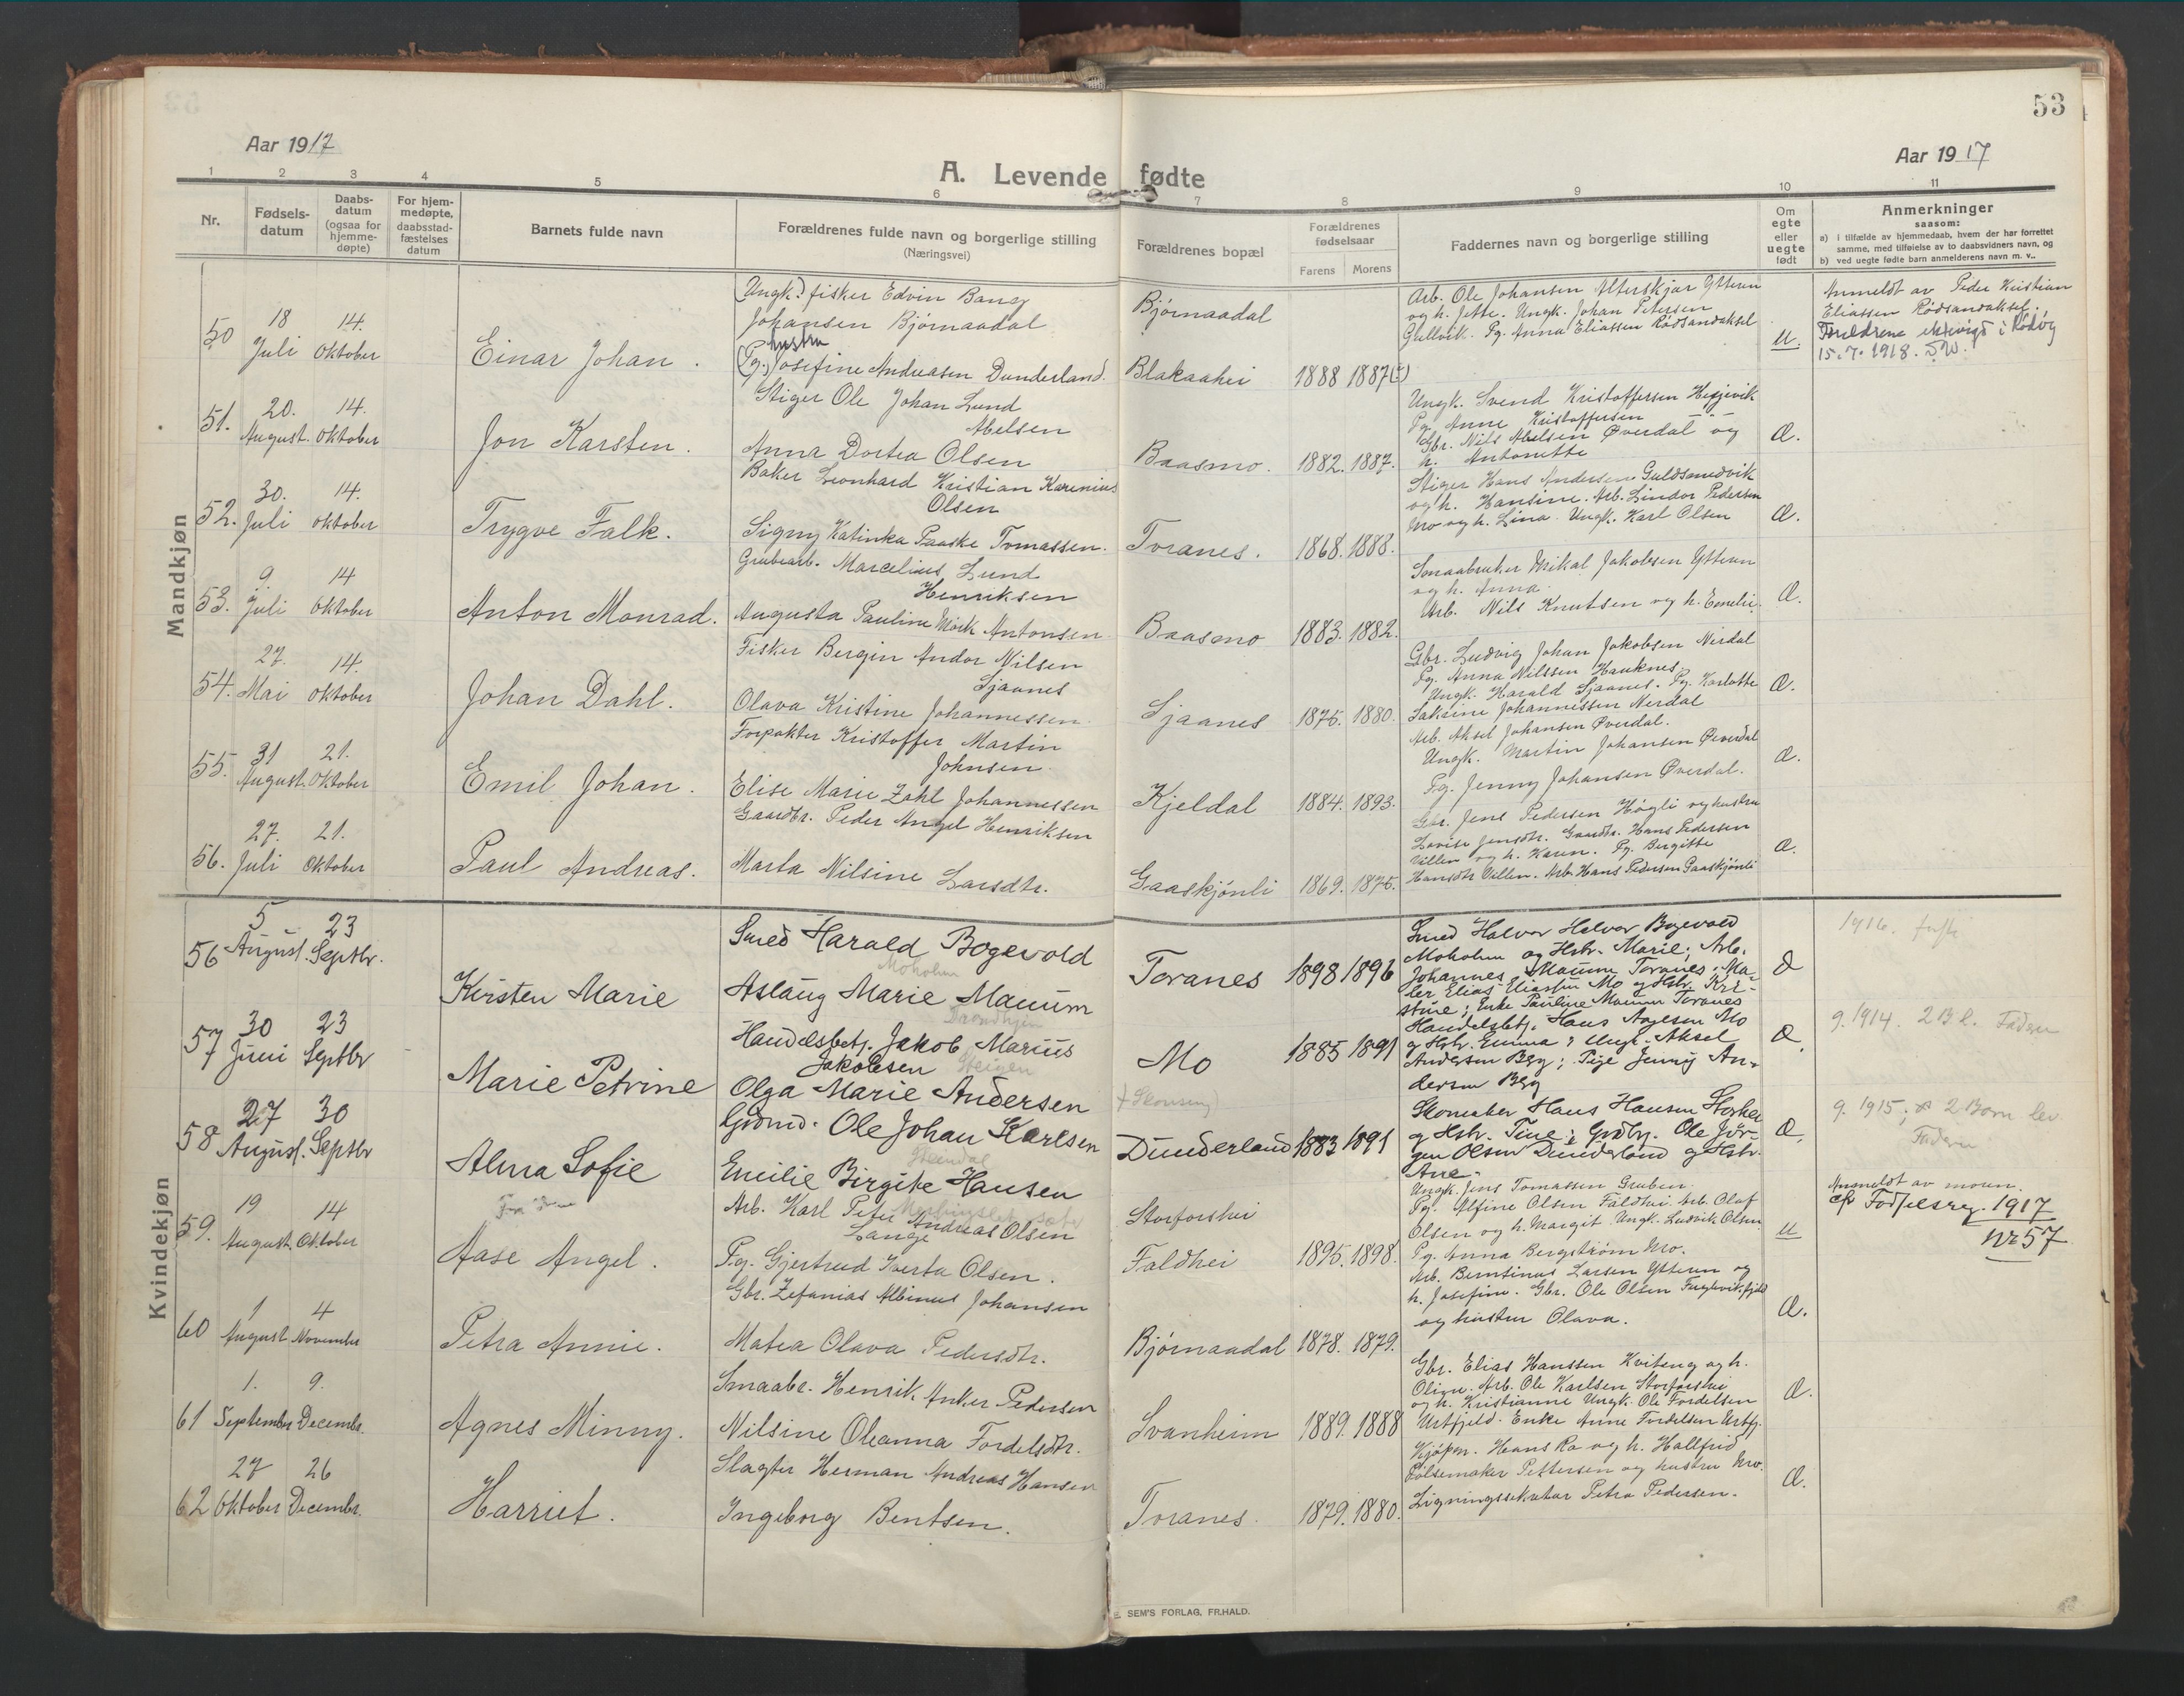 53
Aar 1917
Aar 1917
A. Levende fødte
1 2 3 4 5 6 7 8 9 10 11
Nr.
Fødsels-
datum
Daabs-
datum
(ogsaa for
hjemme-
døpte)
For hjem-
medøpte,
daabsstad-
fæstelses
datum
Barnets fulde navn
Forældrenes fulde navn og borgerlige stilling
(Næringsvei)
Forældrenes bopæl
Forældrenes
fødselsaar
Farens Morens
Faddernes navn og borgerlige stilling
Om
egte
eller
uegte
født
Anmerkninger
saasom:
a) i tilfælde av hjemmedaab, hvem der har forrettet
samme, med tilføielse av to daabsvidners navn, og
b) ved uegte fødte barn anmelderens navn m. v..
Mandkjøn
50
18 Juli
14. Oktober
Einar Johan.
(Ungk.) fisker Edvin Bang
Johansen Bjørnaadal
hustru
(Pg.) Josefine Andreasen Dunderland.
Bjørnaadal
Blakaahei
1888 1887
Arb. Ole Johansen Alterskjær Ytteren
og h. Jette. Ungk. Johan Petersen
Gullvik. Pg. Anna Eliassen Rødsandaksel
u.
Anmeldt av Peder Kristian
Eliassen Rødsandaksel.
Forældrene egteviet i Rødøy
15.7.1918.
51.
20. August.
14. Oktober
Jon Karsten.
Stiger Ole Johan Lund
Abelsen
Anna Dortea Olsen
Baasmo.
1882. 1887.
Ungk. Svend Kristoffersen Hegjevik
Pg. Anne Kristoffersen
Gbr. Nils Abelsen Øverdal og
h. Antonette
Æ.
52.
30. Juli
14. Oktober
Trygve Falk.
Baker Leonhard Kristian Karenius
Olsen
Signy Katinka Paaske Tomassen.
Toranes.
1868. 1888.
Stiger Hans Andersen Guldsmedvik
og h. Hansine. Arb. Lindor Pedersen
Mo og h. Lina. Ungk. Karl Olsen
Æ.
53.
9. Juli
14 Oktober
Anton Monrad.
Grubearb. Marcelius Lund
Henriksen
Augusta Pauline Mørk Antonsen
Baasmo
1883. 1882.
Smaabruker Mikal Jakobsen Ytteren
og h. Anna.
Arb. Nils Knutsen og h. Emelie.
Æ.
54.
27. Mai
14. Oktober
Johan Dahl.
Fisker Bergin Andor Nilsen
Sjaanes
Olava Kristine Johannessen.
Sjaanes
1875. 1880.
Gbr. Ludvig Johan Jakobsen Nerdal
Pg. Anna Nilssen Hauknes.
Ungk. Harald Sjaanes. Pg. Karlotte
Saksine Johannessen Nerdal
Æ.
55.
31 August.
21. Oktober
Emil Johan.
Forpakter Kristoffer Martin
Johnsen.
Elise Marie Zahl Johannessen
Kjeldal
1884. 1893.
Arb. Aksel Johansen Øverdal.
Ungk. Martin Johansen Øverdal
Pg. Jenny Johansen Øverdal.
Æ.
56.
27. Juli
21. Oktober
Paul Andreas.
Gaardbr. Peder Angel Henriksen
Marta Nilsine Larsdtr.
Gaaskjønli
1869. 1875.
Gbr. Jens Pedersen Høgli og hustru
Lovise Jensdtr. Gaardbr. Hans Pedersen
Villen og h. Karen. Pg. Bergitte
Hansdtr Villen. Arb. Hans Pedersen Gaaskjønli
Æ.
Kvindekjøn
56
5 August.
23 Septbr.
Kirsten Marie
Smed Harald Bogevold
Moholm
Aslaug Marie Mauum
Toranes
1898 1896
Smed Halvor Halvor Bogevold
Moholm og Hstr. Marie; Arb.
Johannes Mauum Toranes; Ma-
ler Elias Eliassen Mo og Hstr. Kri-
stine; Enke Pauline Mauum Toranes
Æ
1916.
57
30 Juni
23 Septbr
Marie Petrine
Handelsbetj. Jakob Marius
Jakobsen
Olga Marie Andersen
Mo
1885 1891
Handelsbetj. Hans Aagesen Mo
og Hstr. Emma; Ungk. Aksel
Andersen Berg; Pige Jenny An-
dersen Berg
Æ.
g. 1914. 2 B l. Faderen
58
27 August.
30 Septbr
Alma Sofie
Grdmd. Ole Johan Karlsen
Emilie Birgite Hansen
Dunderland
1883 1891
Skomaker Hans Hansen Storhei
og Hstr. Tine; Grdbr. Ole Jør-
gen Olsen Dunderland og Hstr.
Ane.
Æ.
g. 1915; 2 Børn lev
Faderen
59.
19 August.
14 Oktober
Aase Angel.
Arb. Karl Peter Andreas Olsen
Lange
Pg. Gjertrud Iverta Olsen.
Storforshei
Faldhei
1895. 1898.
Ungk. Jens Tomassen Gruben.
Pg. Alfine Olsen Faldhei. Arb. Olaf
Olsen og h. Margit. Ungk. Ludvik Olsen
Pg. Anna Bergstrøm Mo.
u
Anmeldt av moren.
cfr Fødselsreg. 1917
Nr 57
60
1 August.
4 November
Petra Annie.
Gbr. Zefanias Albinus Johansen
Matea Olava Pedersdtr.
Bjørnaadal
1878. 1879.
Arb. Berntinus Larsen Ytteren og
h. Josefine. Gbr. Ole Olsen Fuglevikfjeld
og hustru Olava.
Æ.
61
1. September
9. Decembr.
Agnes Minny.
Smaabr. Henrik Anker Pedersen
Nilsine Oleanna Fordelsdtr.
Svanheim
1889. 1888
Gbr. Elias Hanssen Kviteng og h.
Oline. Arb. Ole Karlsen Storforshei
og h. Kristianne Ungk. Ole Fordelsen
Urtfjeld. Enke Anne Fordelsen Urtfj.
Æ.
62
27 Oktober
26 Decembr.
Harriet.
Slagter Herman Andreas Hansen
Ingeborg Bentsen.
Toranes.
1879. 1880.
Kjøpm. Hans Ra og h. Hallfrid
Pølsemaker Pettersen og hustru Mo.
Ligningssekretær Petra Pedersen.
Æ.
SEM'S FORLAG, FR.HALD.